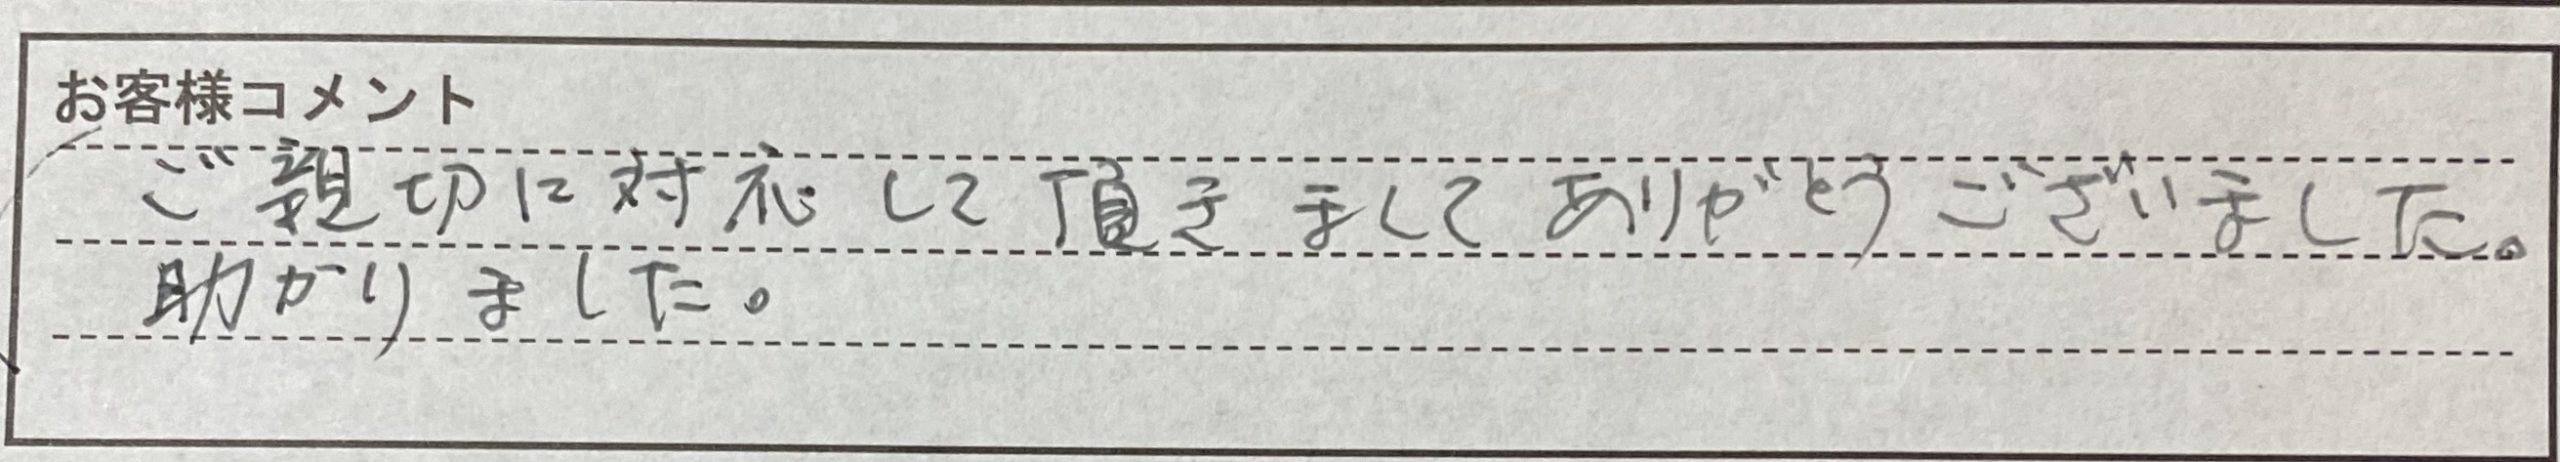 お客様コメント
ご親切に対応して頂きましてありがとうございました。
助かりました。